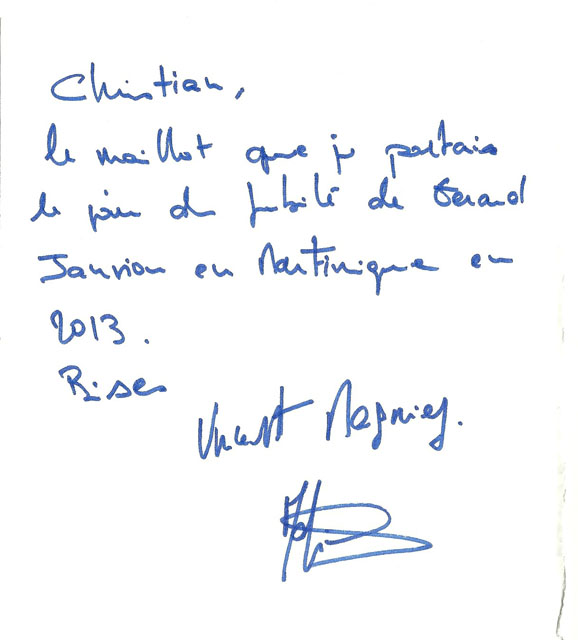 Christian,
le maillot que je portais
le jour du Jubilé de Gérard
Janvion en Martinique en
2013.
Bises
Vincent